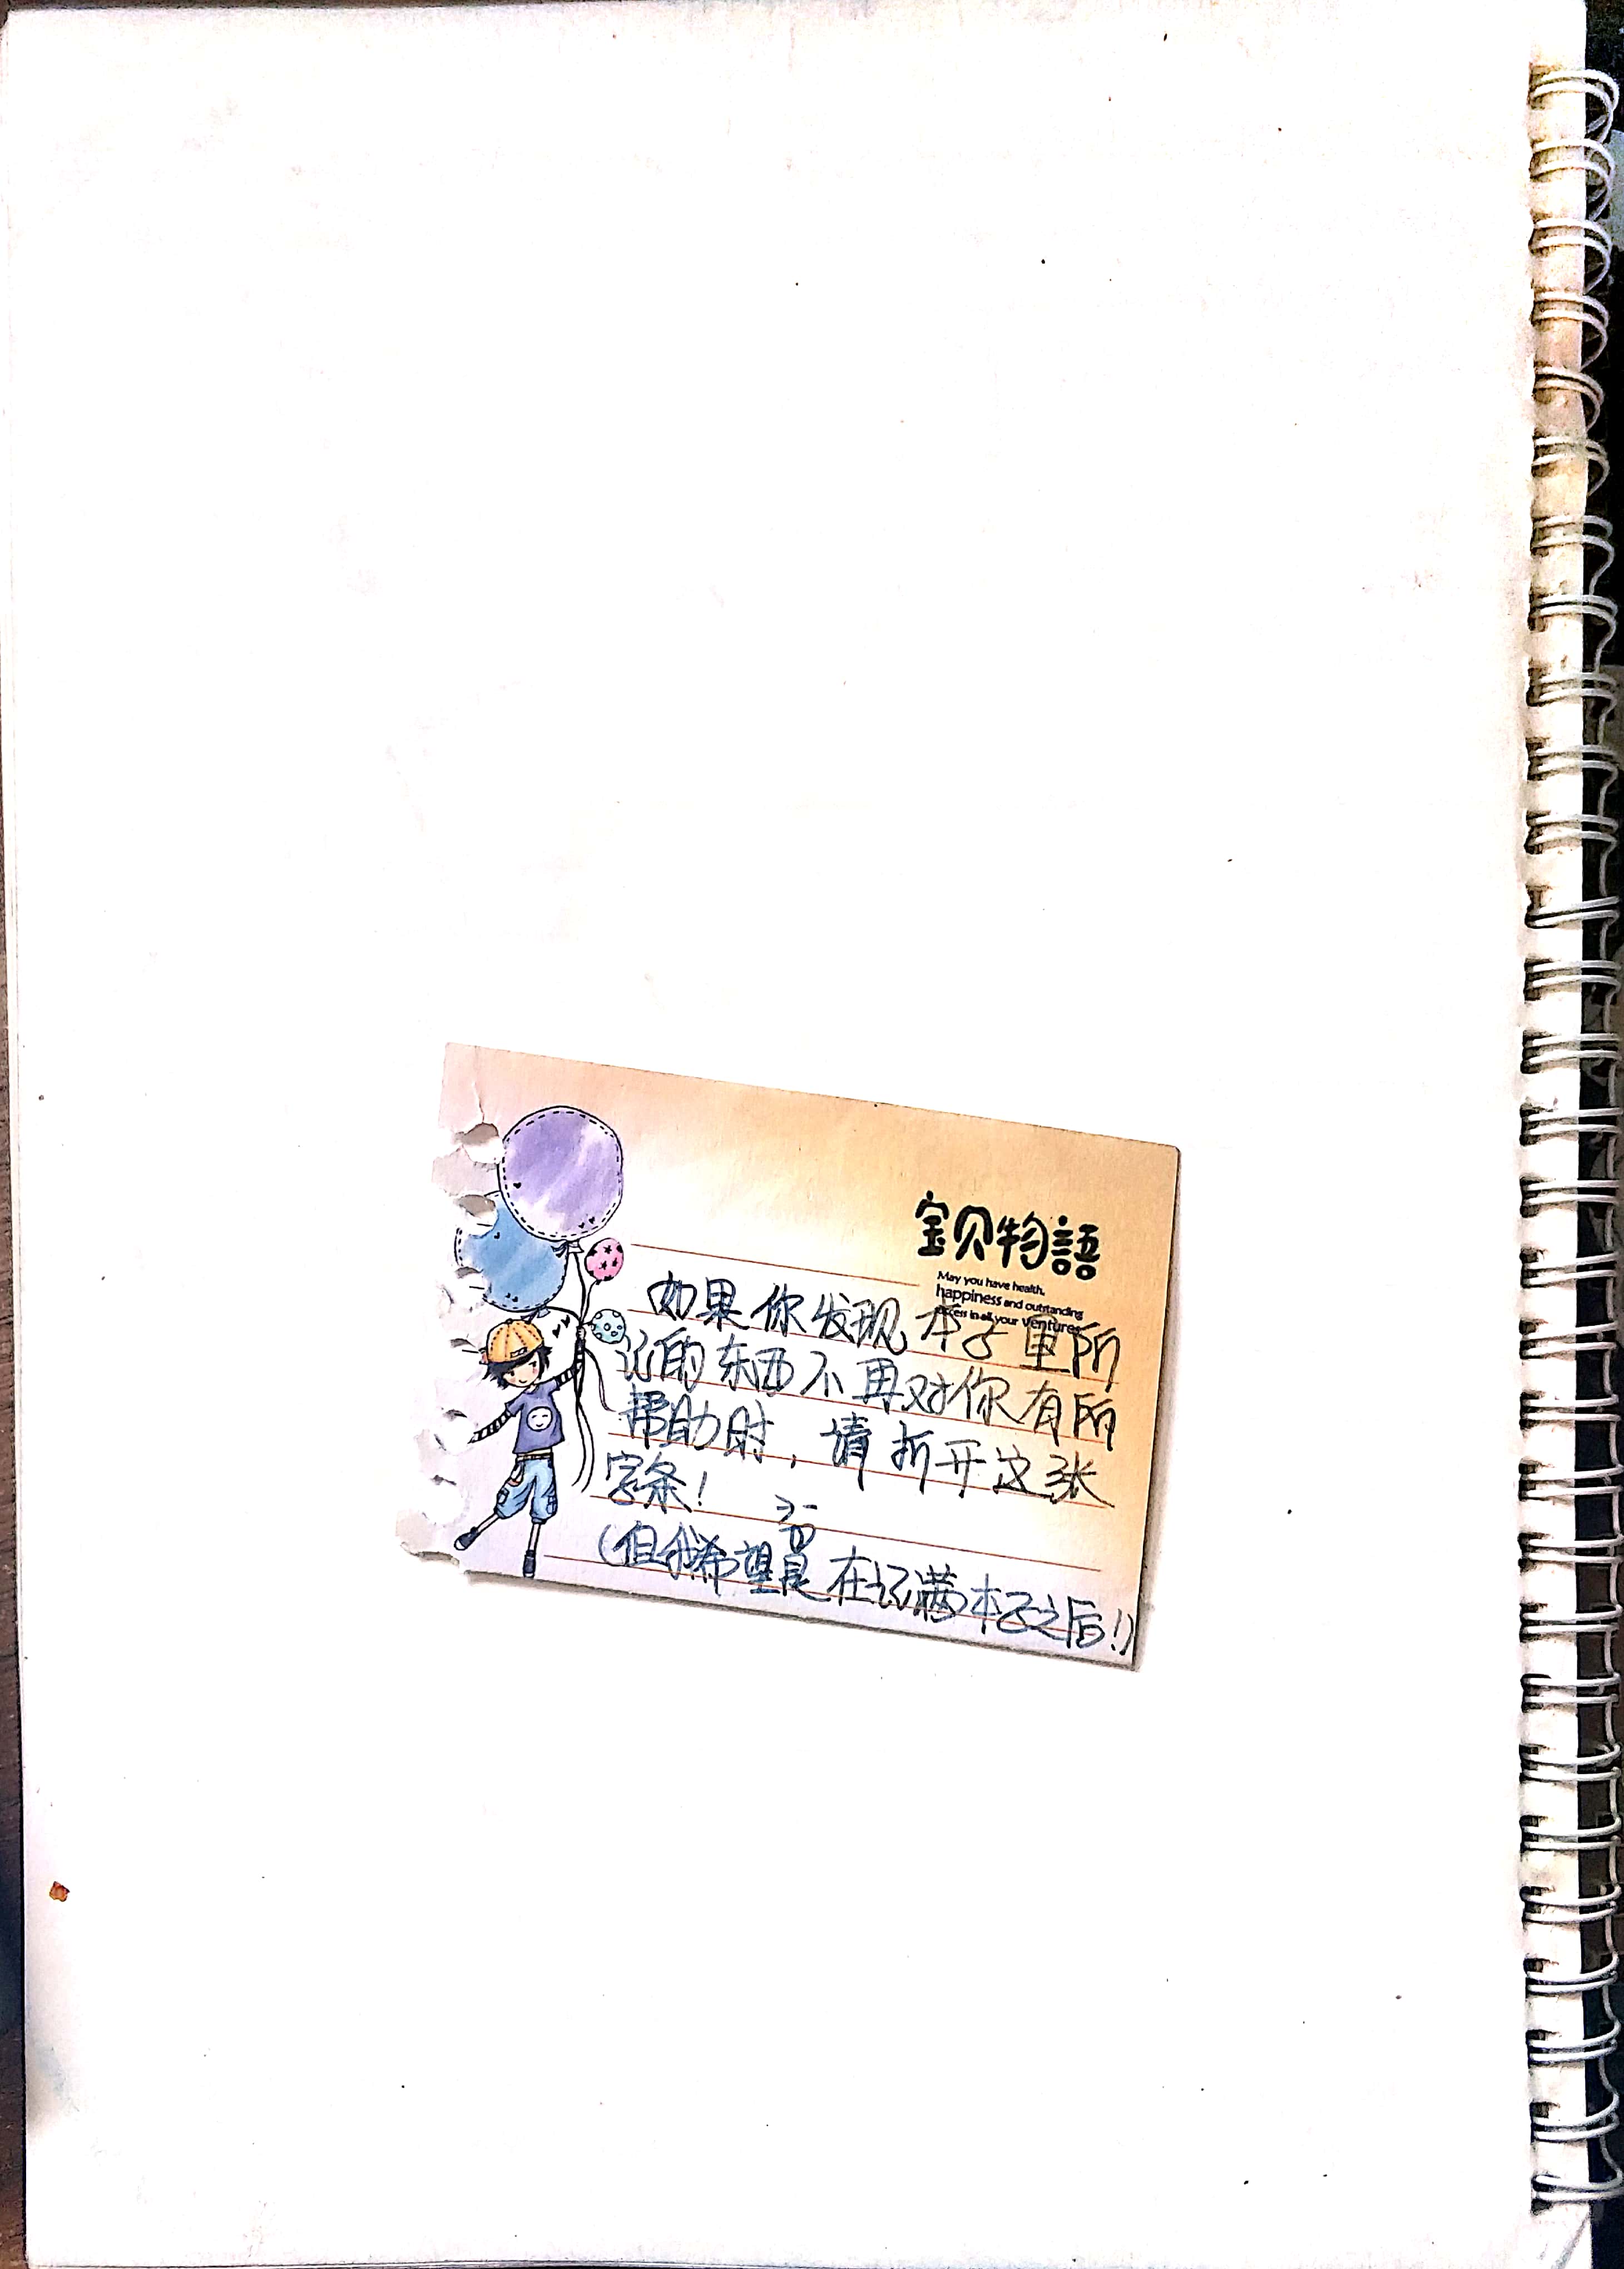 宝贝物語
May you have health,
happiness and outstanding
success in all your ventures
如果你发现本子里所
记的东西不再对你有所
帮助时，请折开这张
字条！
（但我希望是在记满本子之后！）